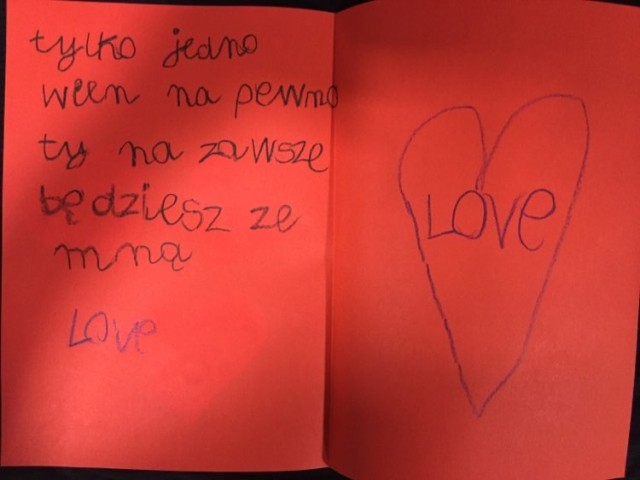 tylko jedno
wiem na pewno
ty na zawsze
będziesz ze
mną
Love
LOVE